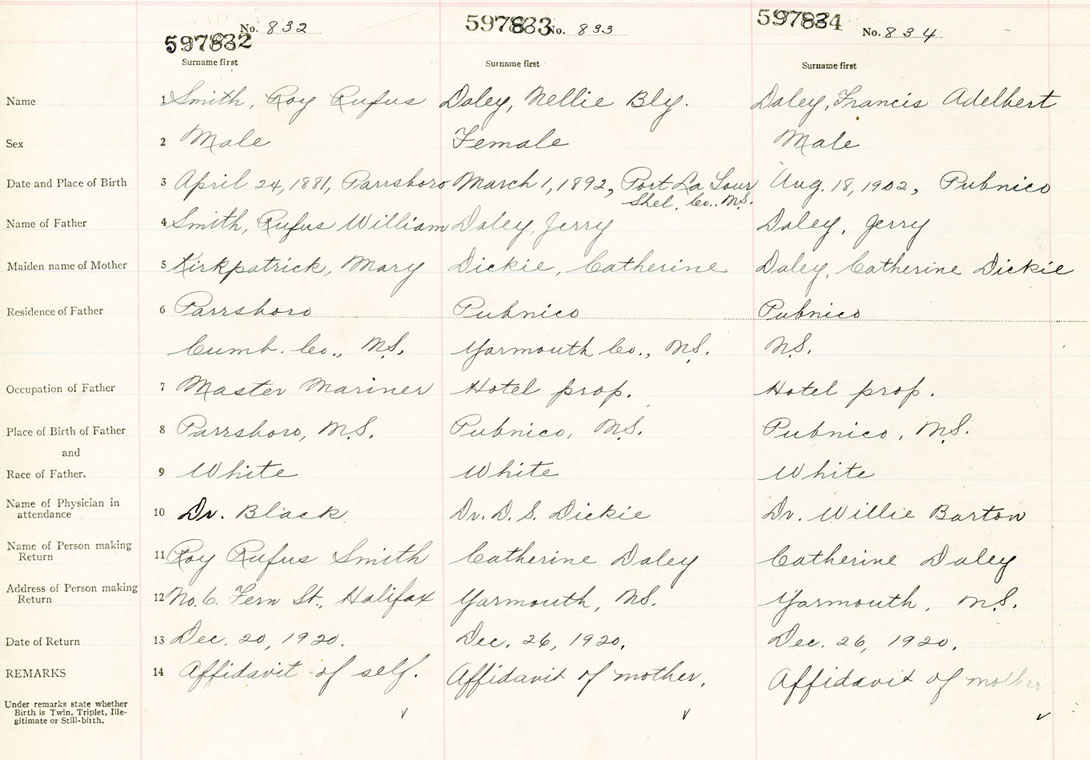 No. 832 597833 No. 833 597834 No. 834
597832
Surname first Surname first Surname first
Name 1 Smith, Roy Rufus Daley, Nellie Bly. Daley, Francis Adelbert
Sex 2 Male Female Male
Date and Place of Birth 3 April 24, 1881, Parrsboro March 1, 1892, Port La Tour Aug. 18, 1902, Pubnico
Shel. Co., N.S.
Name of Father 4 Smith, Rufus William Daley, Jerry Daley, Jerry
Maiden name of Mother 5 Kirkpatrick, Mary Dickie, Catherine Daley, Catherine Dickie
Residence of Father 6 Parrsboro Pubnico Pubnico
Cumb. Co., N.S. Yarmouth Co., N.S. N.S.
Occupation of Father 7 Master Mariner Hotel prop. Hotel prop.
Place of Birth of Father 8 Parrsboro, N.S. Pubnico, N.S. Pubnico, N.S.
and
Race of Father. 9 White White White
Name of Physician in
attendance 10 Dr. Black Dr. D. S. Dickie Dr. Willie Barton
Name of Person making
Return 11 Roy Rufus Smith Catherine Daley Catherine Daley
Address of Person making
Return 12 No. 6. Fern St., Halifax Yarmouth, N.S. Yarmouth, N.S.
Date of Return 13 Dec. 20, 1920. Dec. 26, 1920. Dec. 26, 1920.
REMARKS 14 Affidavit of self. Affidavit of mother. Affidavit of mother
Under remarks state whether
Birth is Twin, Triplet, Ille-
gitimate or Still-birth.